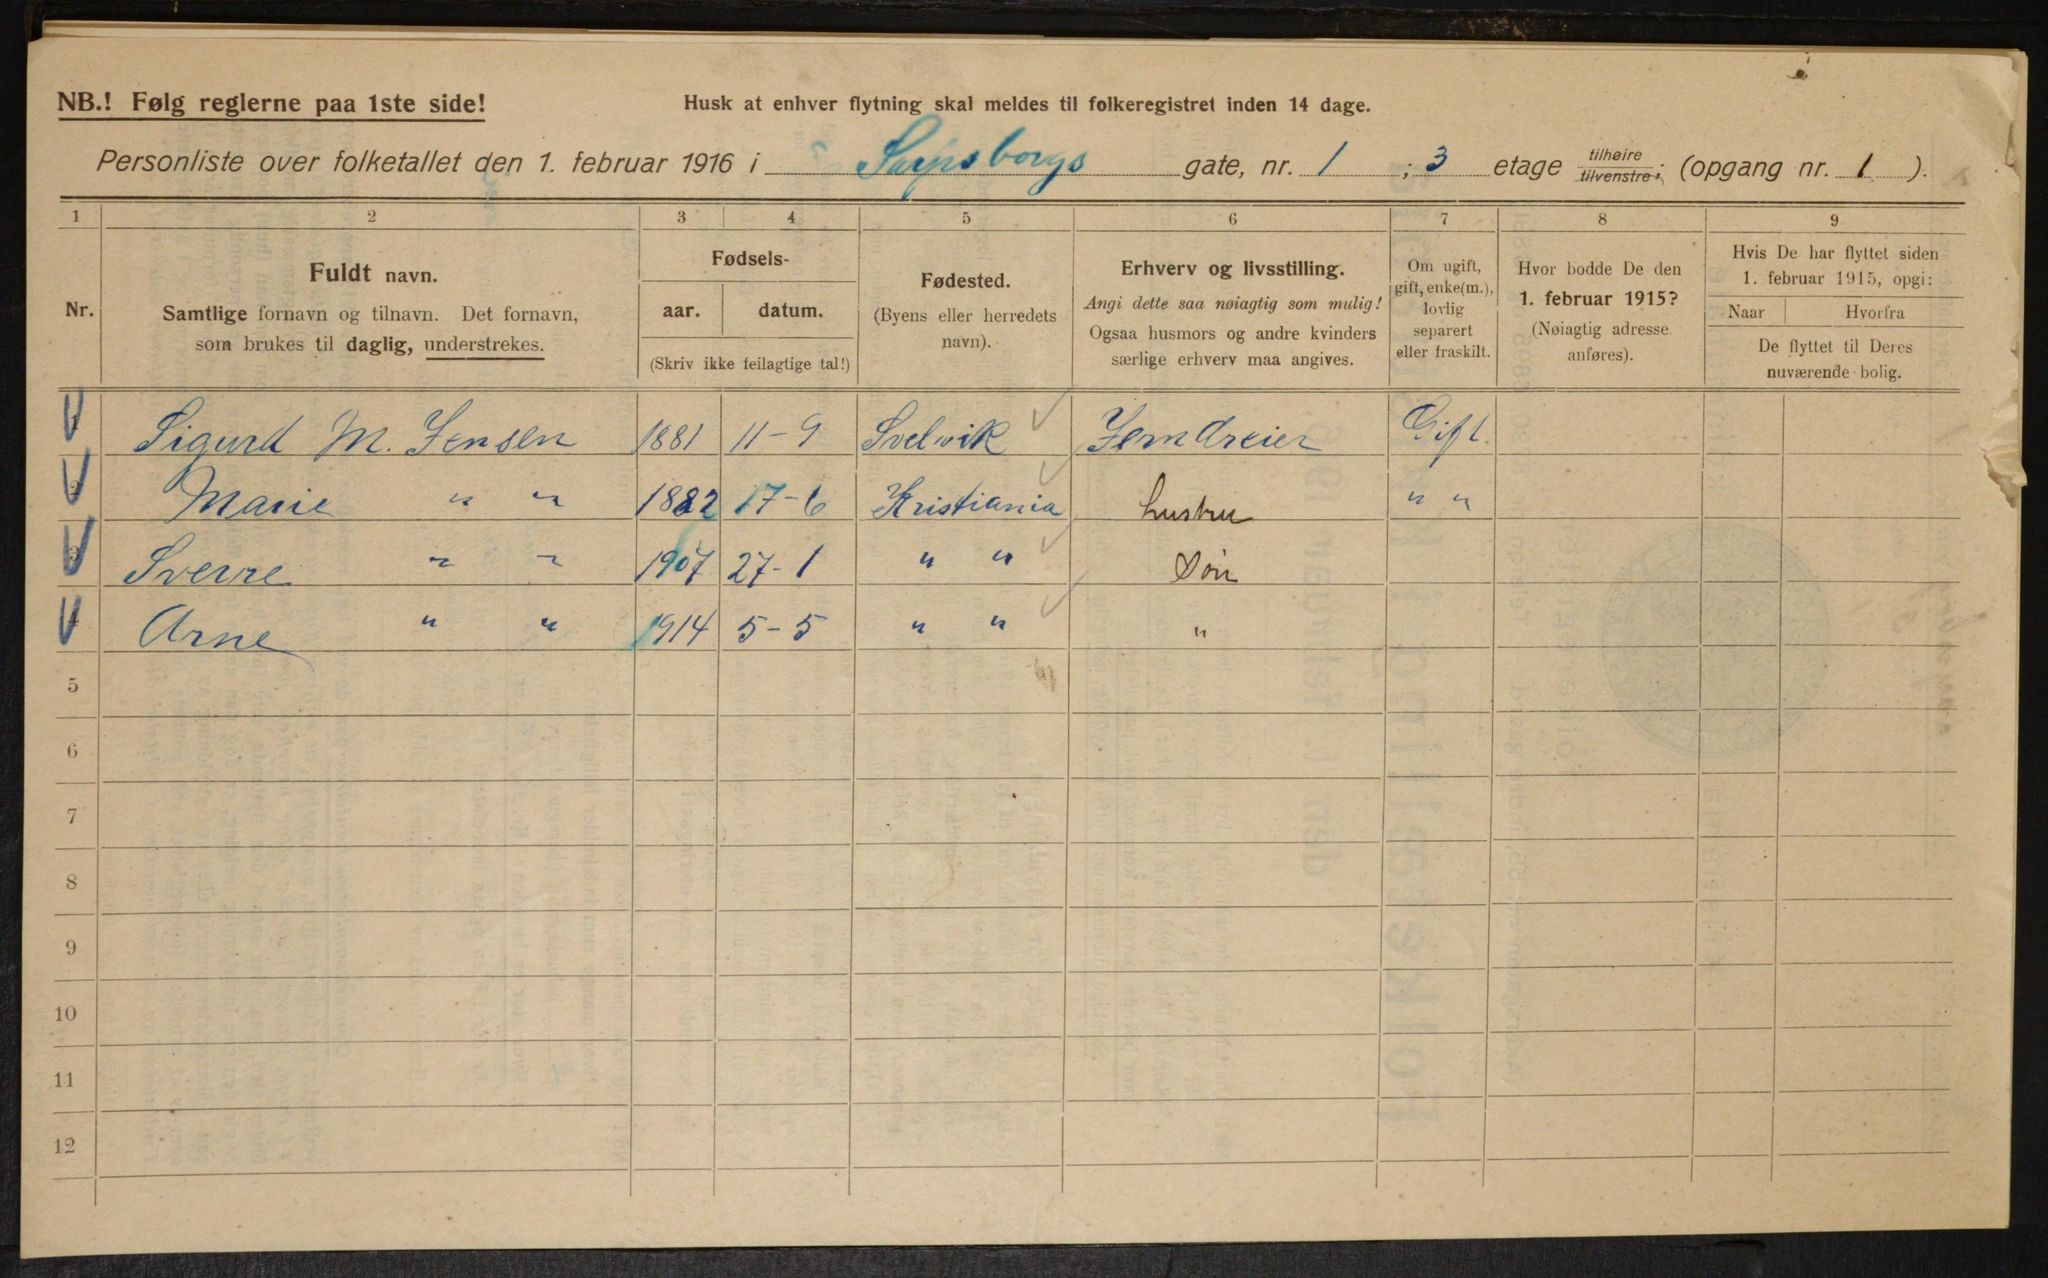 NB.! Følg reglerne paa 1ste side!
Husk at enhver flytning skal meldes til folkeregistret inden 14 dage.
Personliste over folketallet den 1. februar 1916 i Sarpsborgs gate, nr. 1 ; 3 etage tilhøire tilvenstre; (opgang nr. 1 ).
1 2 3 4 5 6 7 8 9
Nr.
Fuldt navn.
Samtlige fornavn og tilnavn. Det fornavn,
som brukes til daglig, understrekes.
Fødsels-
aar. datum.
(Skriv ikke feilagtige tal!)
Fødested.
(Byens eller herredets
navn).
Erhverv og livsstilling.
Angi dette saa nøiagtig som mulig!
Ogsaa husmors og andre kvinders
særlige erhverv maa angives.
Om ugift,
gift, enke(m.),
lovlig
separert
eller fraskilt.
Hvor bodde De den
1. februar 1915?
(Nøiagtig adresse
anføres).
Hvis De har flyttet siden
1. februar 1915, opgi:
Naar Hvorfra
De flyttet til Deres
nuværende bolig.
1 Sigurd M. Jensen 1881 11-9 Svelvik Jerndreier Gift.
2 Marie " " 1882 17-6 Kristiania hustru " "
3 Sverre " " 1907 27-1 " " Søn
4 Arne " " 1914 5-5 " " "
5
6
7
8
9
10
11
12